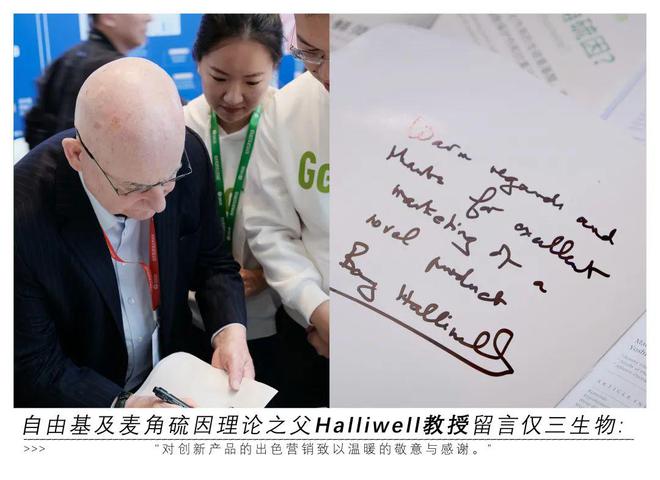 硫因?
Warm regards and
thanks for excellent
marketing of a
novel product
Barry Halliwell
ARTICLE
自由基及麦角硫因理论之父Halliwell教授留言仅三生物:
>>> "对创新产品的出色营销致以温暖的敬意与感谢。"